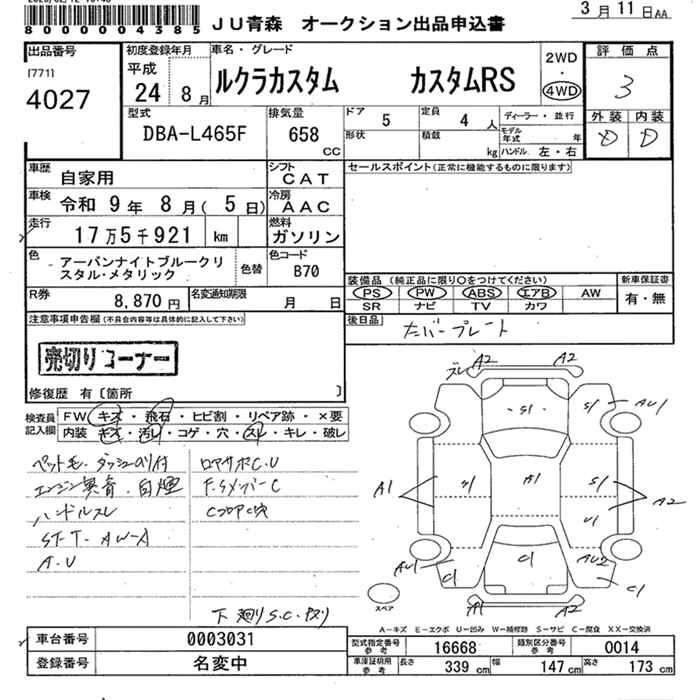 80000004385 JU青森 オークション出品申込書 3月11日AA
出品番号 初度登録年月 車名・グレード 2WD 評価点
[771] 平成 ルクラカスタム カスタムRS ・ 3
4027 24 8月 4WD 外装 内装
型式 排気量 ドア 5 定員 4人 ディーラー・並行 D D
DBA-L465F 658 CC 形状 積載 kg モデル年式 年
ハンドル 左・右
車歴 自家用 シフト CAT セールスポイント(正常に機能するものに限ります)
車検 令和 9年 8月( 5日) 冷房 AAC
走行 17万5千921 km 燃料 ガソリン
色 アーバンナイトブルークリスタル・メタリック 色替 色コード B70
装備品 (純正品に限り○をつけてください) 新車保証書
R券 8,870円 名変通知期限 月 日 PS PW ABS エアB AW 有・無
SR ナビ TV カワ
注意事項申告欄(不具合内容等は具体的に記入して下さい) 後日品
売切りコーナー
修復歴 有〔箇所 〕
検査員記入欄 FW キズ・飛石・ヒビ割・リペア跡・×要
内装 キズ・汚レ・コゲ・穴・スレ・キレ・破レ
エンジン異音・白煙
ハンドルスレ
ST-T・AW-A
A・U
ロアサポC,U
下廻りS.C.
A2 A2
ズレ
S1 S1 AU1
A1 S1 A1 S1 A2
U1
AU1 C1 C1 AU2 C1
A1 A2
スペア
A－キズ E－エクボ U－凹み W－補修跡 S－サビ C－腐食 XX－交換済
車台番号 0003031 型式指定番号 参考 16668 類別区分番号 参考 0014
登録番号 名変中 車庫証明用 参考 長さ 339cm 幅 147cm 高さ 173cm